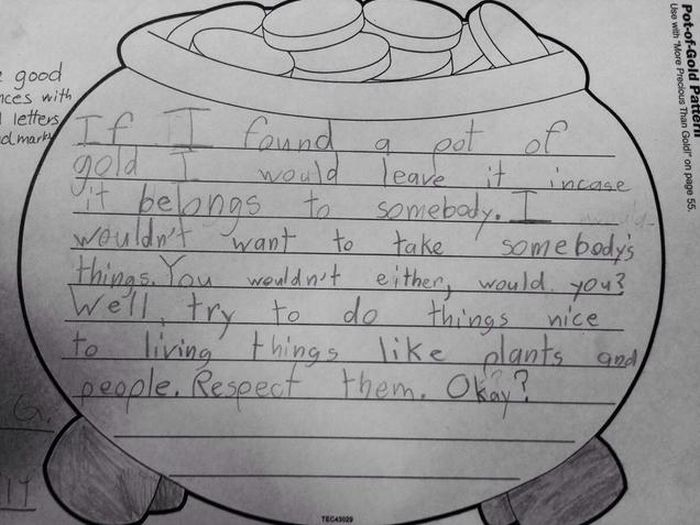 Pot-of-Gold Pattern
Use with "More Precious Than Gold!" on page 55.
good
nces with
letters
If I found a pot of
gold I would leave it incase
it belongs to somebody. I
wouldn't want to take somebody's
things. You wouldn't either, would you?
We'll, try to do things nice
to living things like plants and
people. Respect them. Okay?
G.
TEC43029